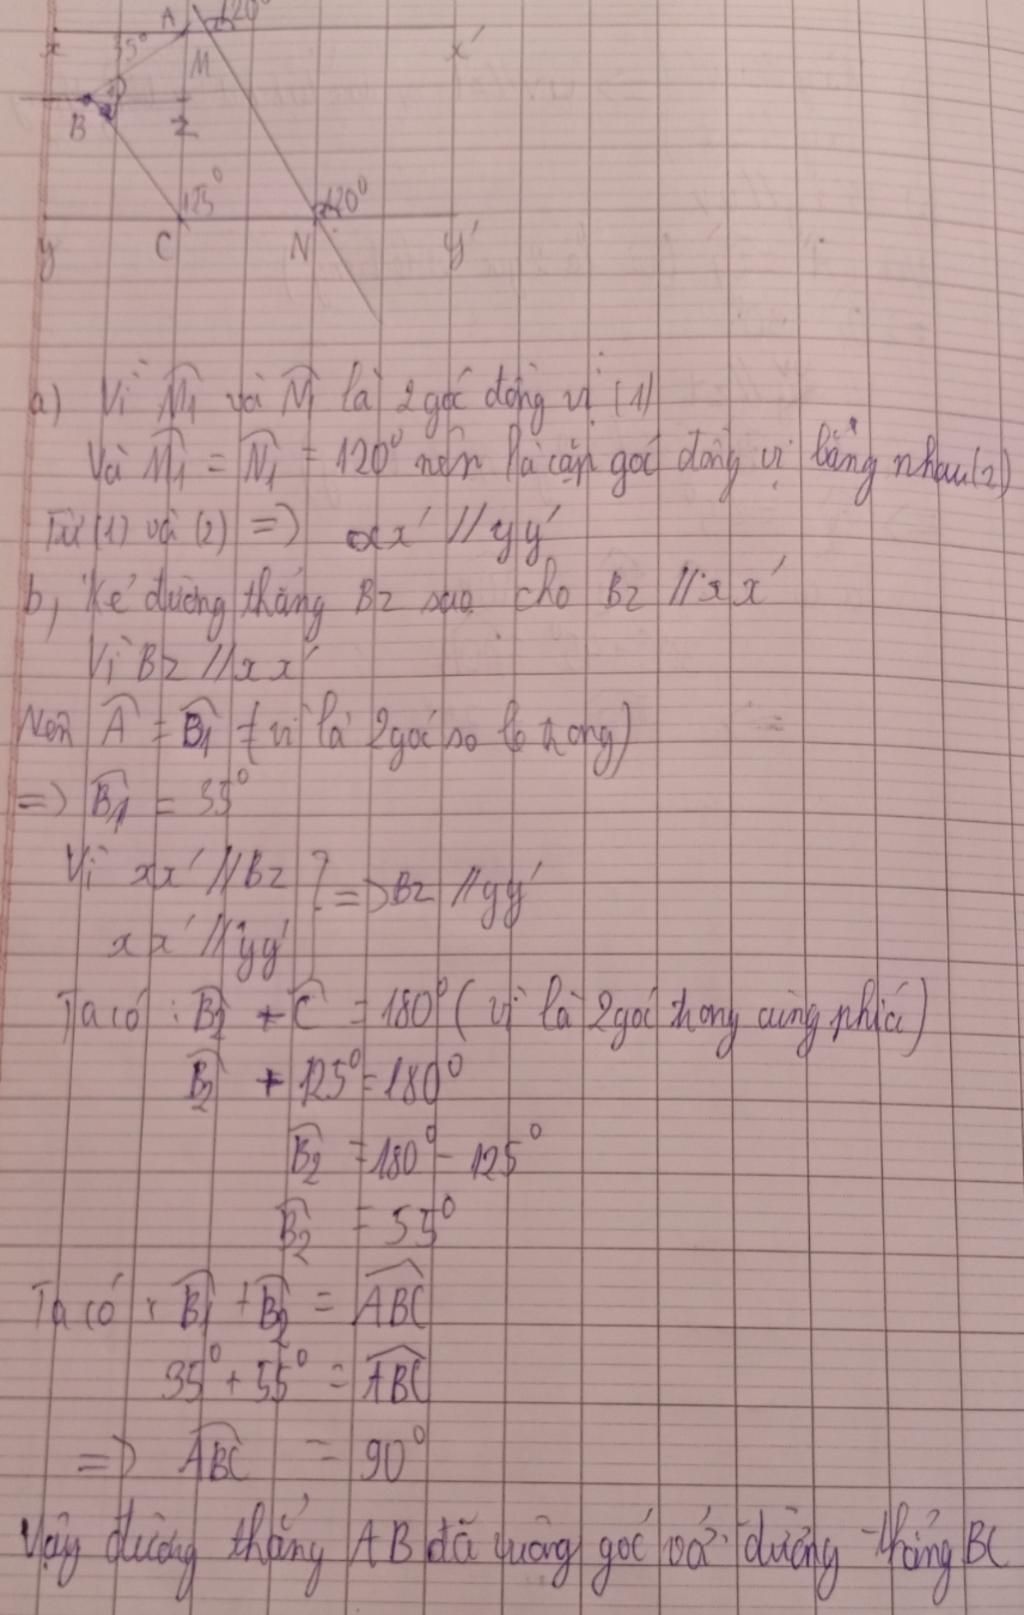 A 120°
x 35° x'
M
B z
125° 120°
y C N y'
a) Vì M̂₁ và N̂₁ là 2 góc đồng vị (1)
Và M̂₁ = N̂₁ = 120° nên là cặp góc đồng vị bằng nhau (2)
Từ (1) và (2) => xx' // yy'
b, Kẻ đường thẳng Bz sao cho Bz // xx'
Vì Bz // xx'
Nên Â = B̂₁ (vì là 2 góc so le trong)
=> B̂₁ = 35°
Vì xx' // Bz } => Bz // yy'
xx' // yy'
Ta có : B̂₂ + Ĉ = 180° (vì là 2 góc trong cùng phía)
B̂₂ + 125° = 180°
B̂₂ = 180° - 125°
B̂₂ = 55°
Ta có : B̂₁ + B̂₂ = ABC
35° + 55° = ABC
=> ABC = 90°
Vậy đường thẳng AB đã vuông góc với đường thẳng BC